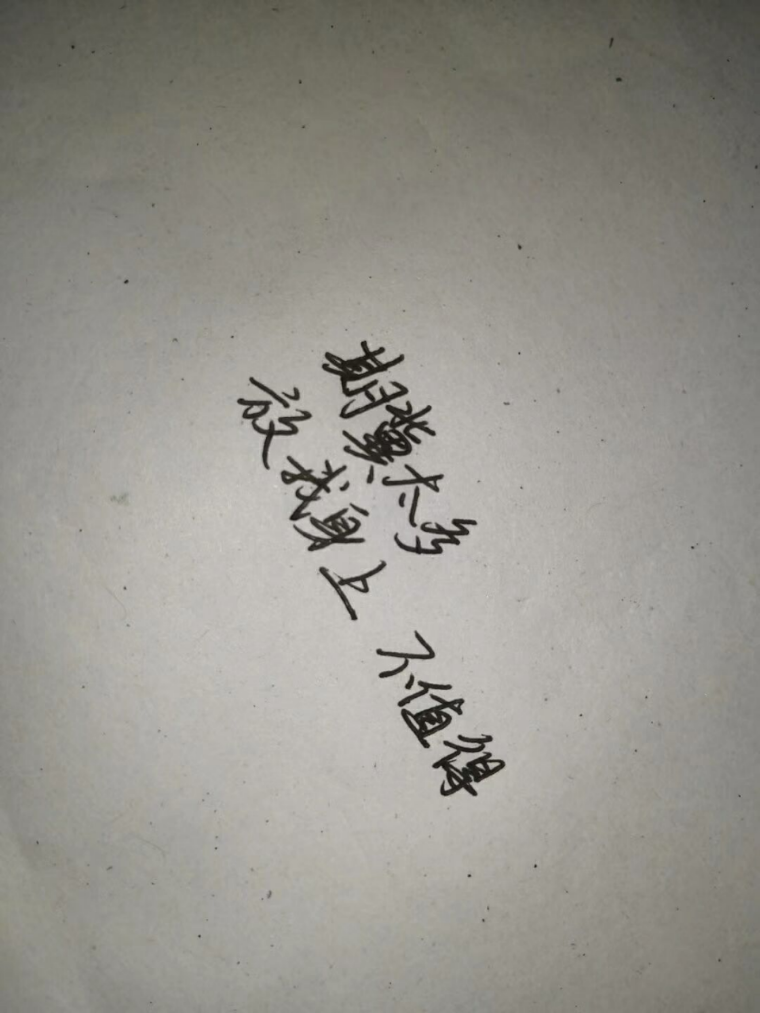 期冀太多
放我身上 不值得